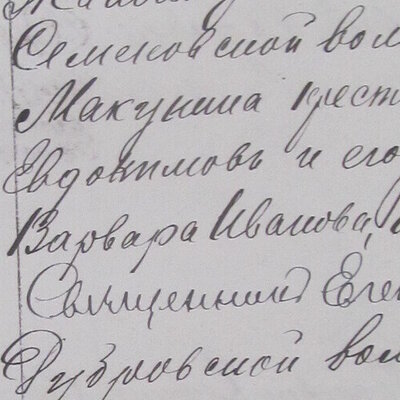 Семеновской вол
Макунина крест
Евдокимовъ и его
Варвара Иванова,
Священникъ Еге
Дубровской вол